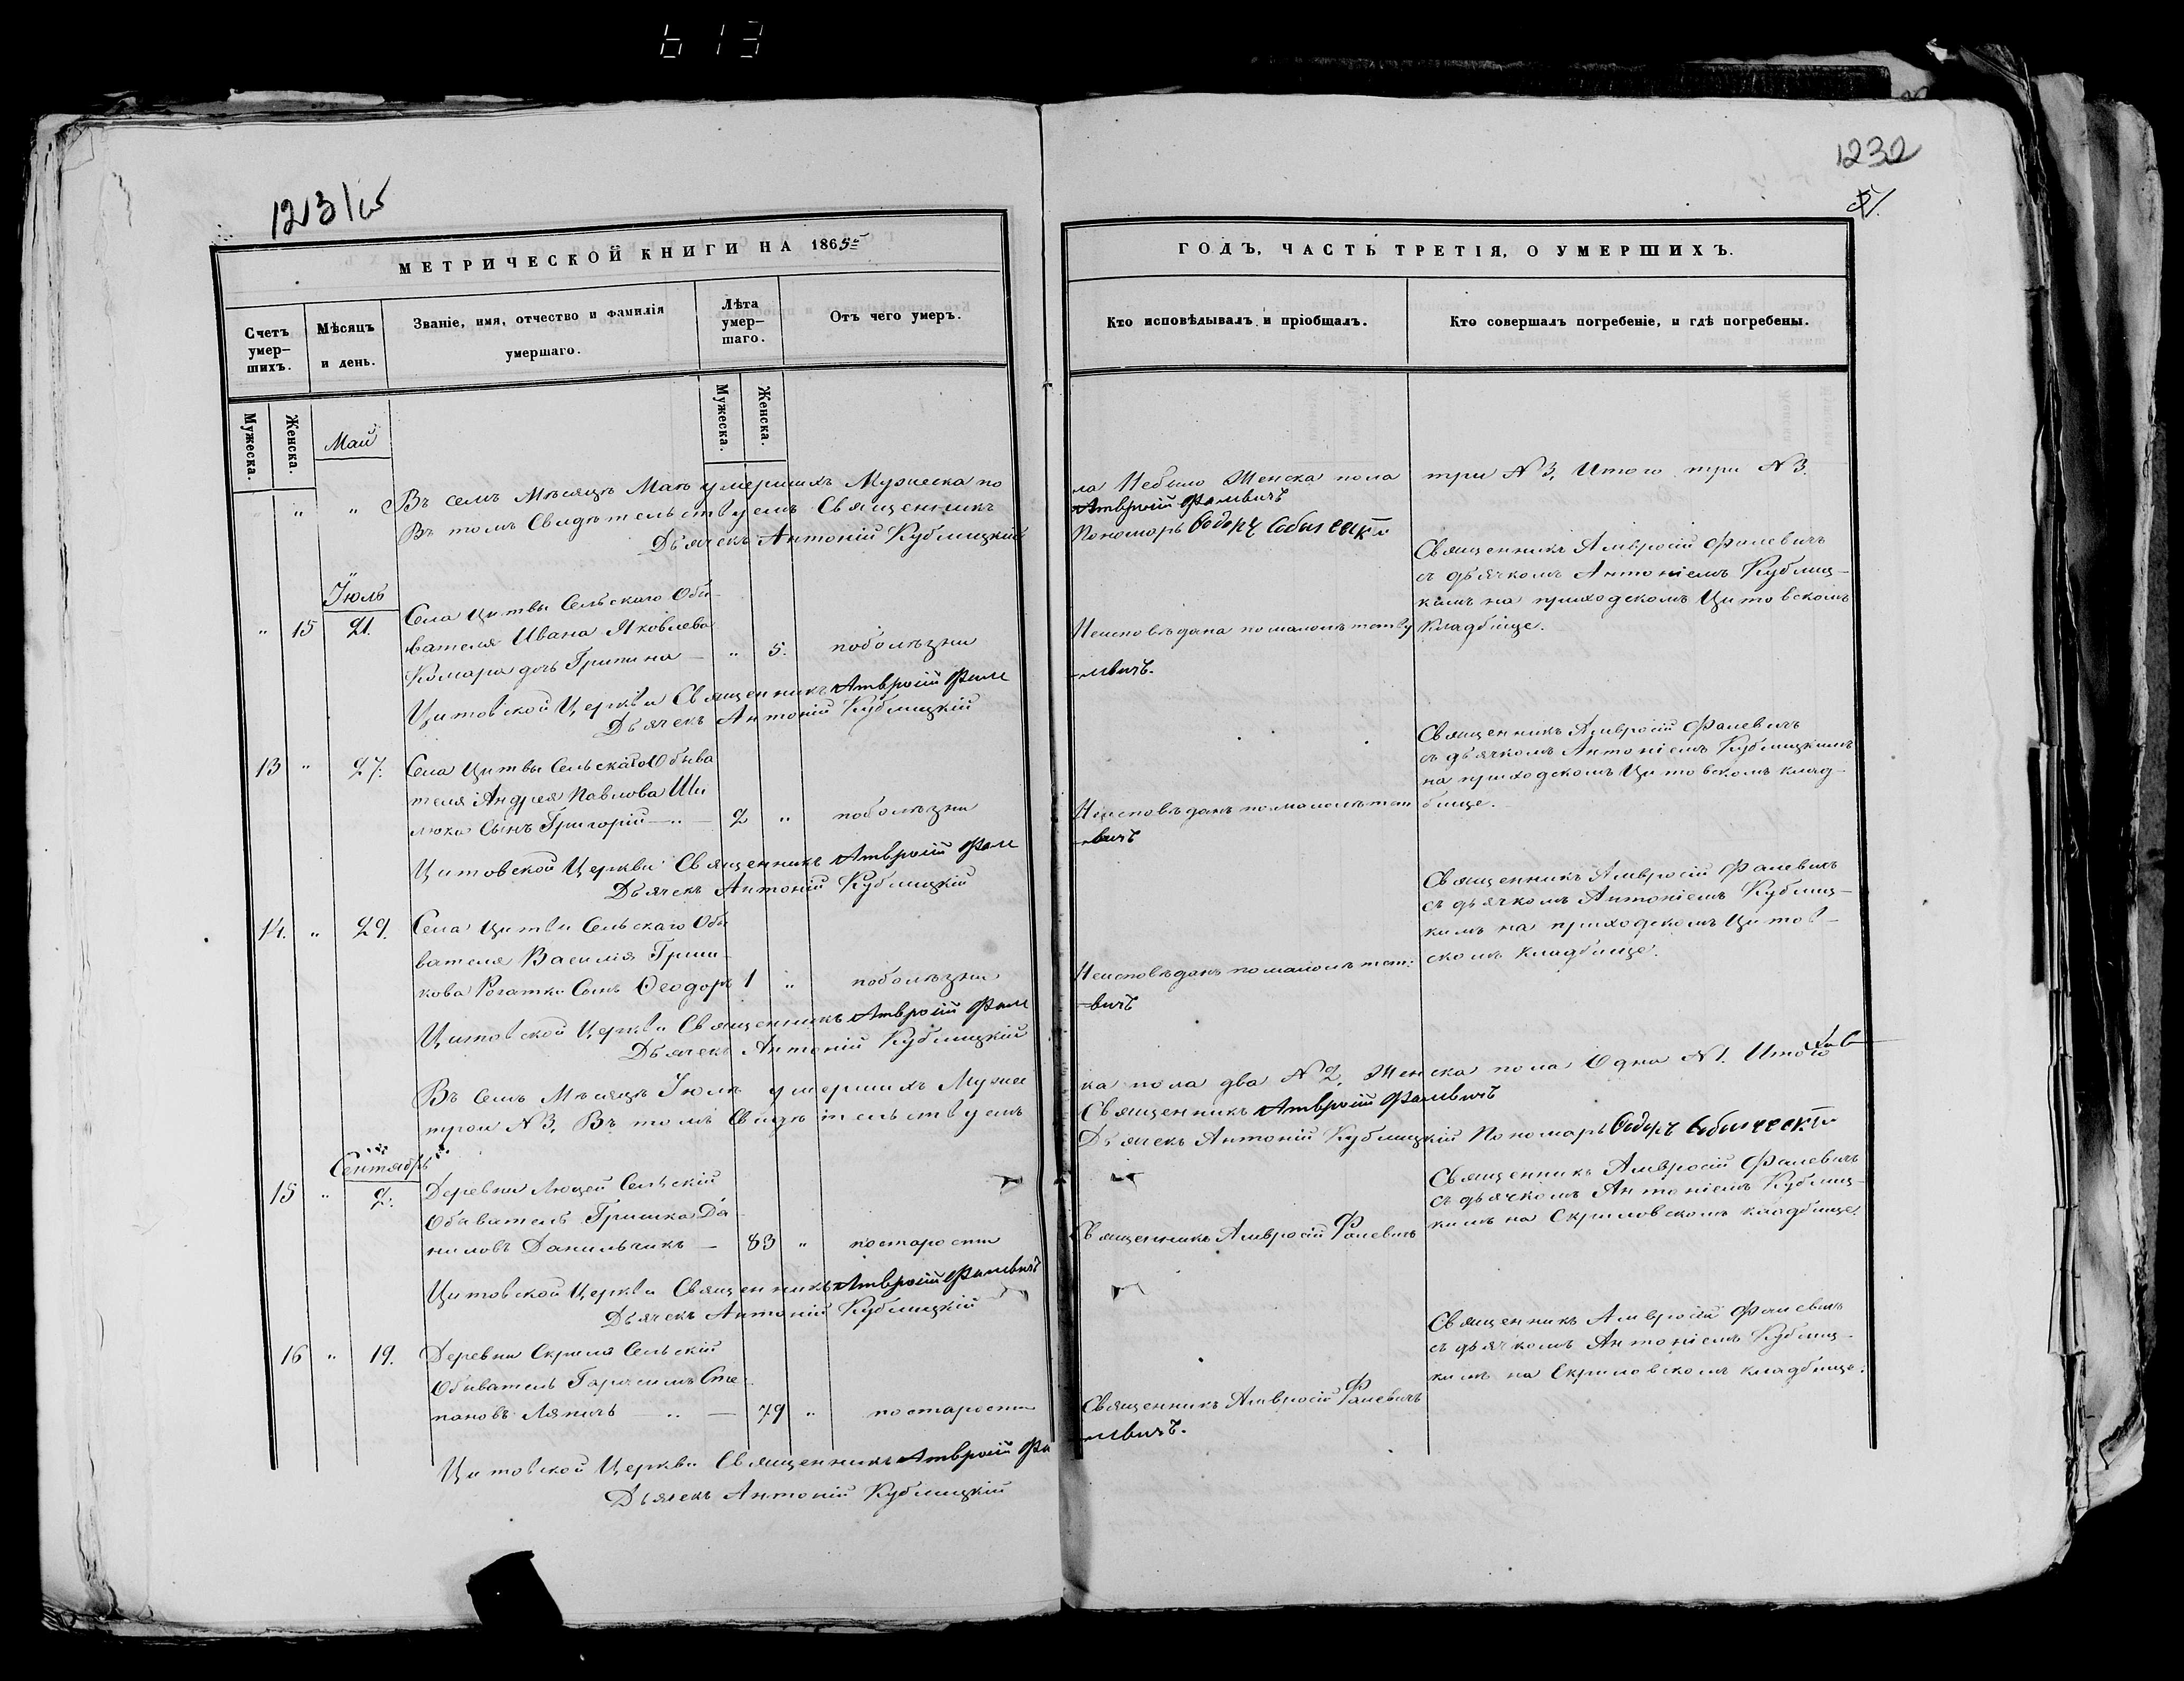 613
1213/65
1232
МЕТРИЧЕСКОЙ КНИГИ НА 1865
ГОДЪ, ЧАСТЬ ТРЕТІЯ, О УМЕРШИХЪ.
Счетъ умер-
шихъ.
Мѣсяцъ
и день.
Званіе, имя, отчество и фамилія
умершаго.
Лѣта
умер-
шаго.
Отъ чего умеръ.
Кто исповѣдывалъ и пріобщалъ.
Кто совершалъ погребеніе, и гдѣ погребены.
Мужеска.
Женска.
Май
Мужеска.
Женска.
" " Въ семъ Мѣсяцѣ Маѣ умершихъ Мужеска по
ла Небыло Женска пола три N 3, Итого три N 3.
Въ томъ Свидѣтельствуемъ Священникъ
Амвросій Фалевичъ
Дьячекъ Антоній Кублицкій
Пономарь Ѳедоръ
Іюль
" 15 21. Села Цитвы Сельскаго Обы-
вателя Ивана Яковлева
Комара дочь Грипина — " 5. поболѣзни
Неисповѣдана помалолѣтству
Священникъ Амвросій Фалевичъ
съ дьячкомъ Антоніемъ Кублиц-
кимъ на приходскомъ Цитовскомъ
Кладбище.
Цитовской Церкви Священникъ Амвросій Фале
-вичъ.
Дьячекъ Антоній Кублицкій
13 " 27. Села Цитвы Сельскаго Обыва
теля Андрея Павлова Ши
люка Сынъ Григорій — " — 2 " поболѣзни
Неисповѣданъ помалолѣтст
Священникъ Амвросій Фалевичъ
съ дьячкомъ Антоніемъ Кублицкимъ
на приходскомъ Цитовскомъ клад-
бище.
Цитовской Церкви Священникъ Амвросій Фале
-вичъ
Дьячекъ Антоній Кублицкій
14. " 29. Села Цитвы Сельскаго Обы
вателя Василія Гриш-
кова Рогатки Сынъ Ѳеодоръ 1 " поболѣзни
Неисповѣданъ помалолѣтст:
Священникъ Амвросій Фалевичъ
съ дьячкомъ Антоніемъ Кублиц-
кимъ на приходскомъ Цитов-
скомъ кладбище.
Цитовской Церкви Священникъ Амвросій Фале
-вичъ
Дьячекъ Антоній Кублицкій
Въ семъ Мѣсяцѣ Іюлѣ умершихъ Мужес
ка пола два N 2, Женска пола Одна N 1. Итого
трои N 3, Въ томъ Свидѣтельствуемъ
Священникъ Амвросій Фалевичъ
Дьячекъ Антоній Кублицкій Пономарь Ѳедоръ
Сентябрь
15 " 2. Деревни Людей Сельскій
Обыватель Гришка Да
ниловъ Данильчикъ — 83 " постарости
Священникъ Амвросій Фалевичъ
Священникъ Амвросій Фалевичъ
съ дьячкомъ Антоніемъ Кублиц-
кимъ на Скриловскомъ кладбище.
Цитовской Церкви Священникъ Амвросій Фалевичъ
Дьячекъ Антоній Кублицкій
16 " 19. Деревни Скриля Сельскій
Обыватель Гарасимъ Сте-
пановъ Ляпичъ — " — 79 " постарости
Священникъ Амвросій Фалевичъ
Священникъ Амвросій Фалевичъ
съ дьячкомъ Антоніемъ Кублиц-
кимъ на Скриловскомъ кладбище.
Цитовской Церкви Священникъ Амвросій Фа
-левичъ.
Дьячекъ Антоній Кублицкій